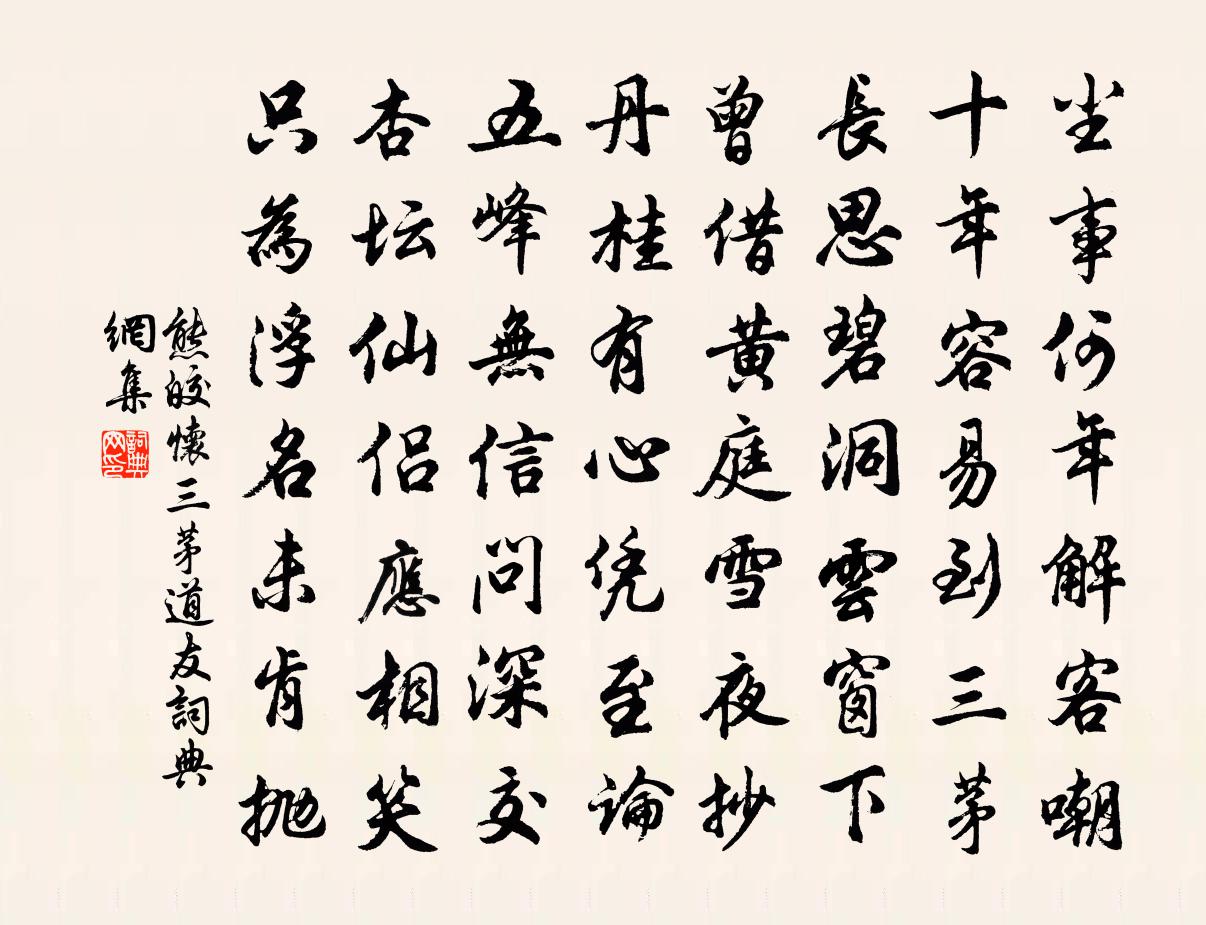 尘事何年解客嘲
十年容易到三茅
長思碧洞雲窗下
曾借黃庭雪夜抄
丹桂有心凭至論
五峰無信問深交
杏坛仙侣應相笑
只為浮名未肯抛
熊皎懷三茅道友詞典
網集
詞典
网印